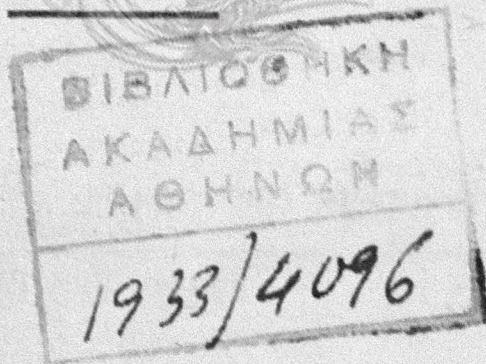 ΒΙΒΛΙΟΘΗΚΗ
ΑΚΑΔΗΜΙΑΣ
ΑΘΗΝΩΝ
1933/4096